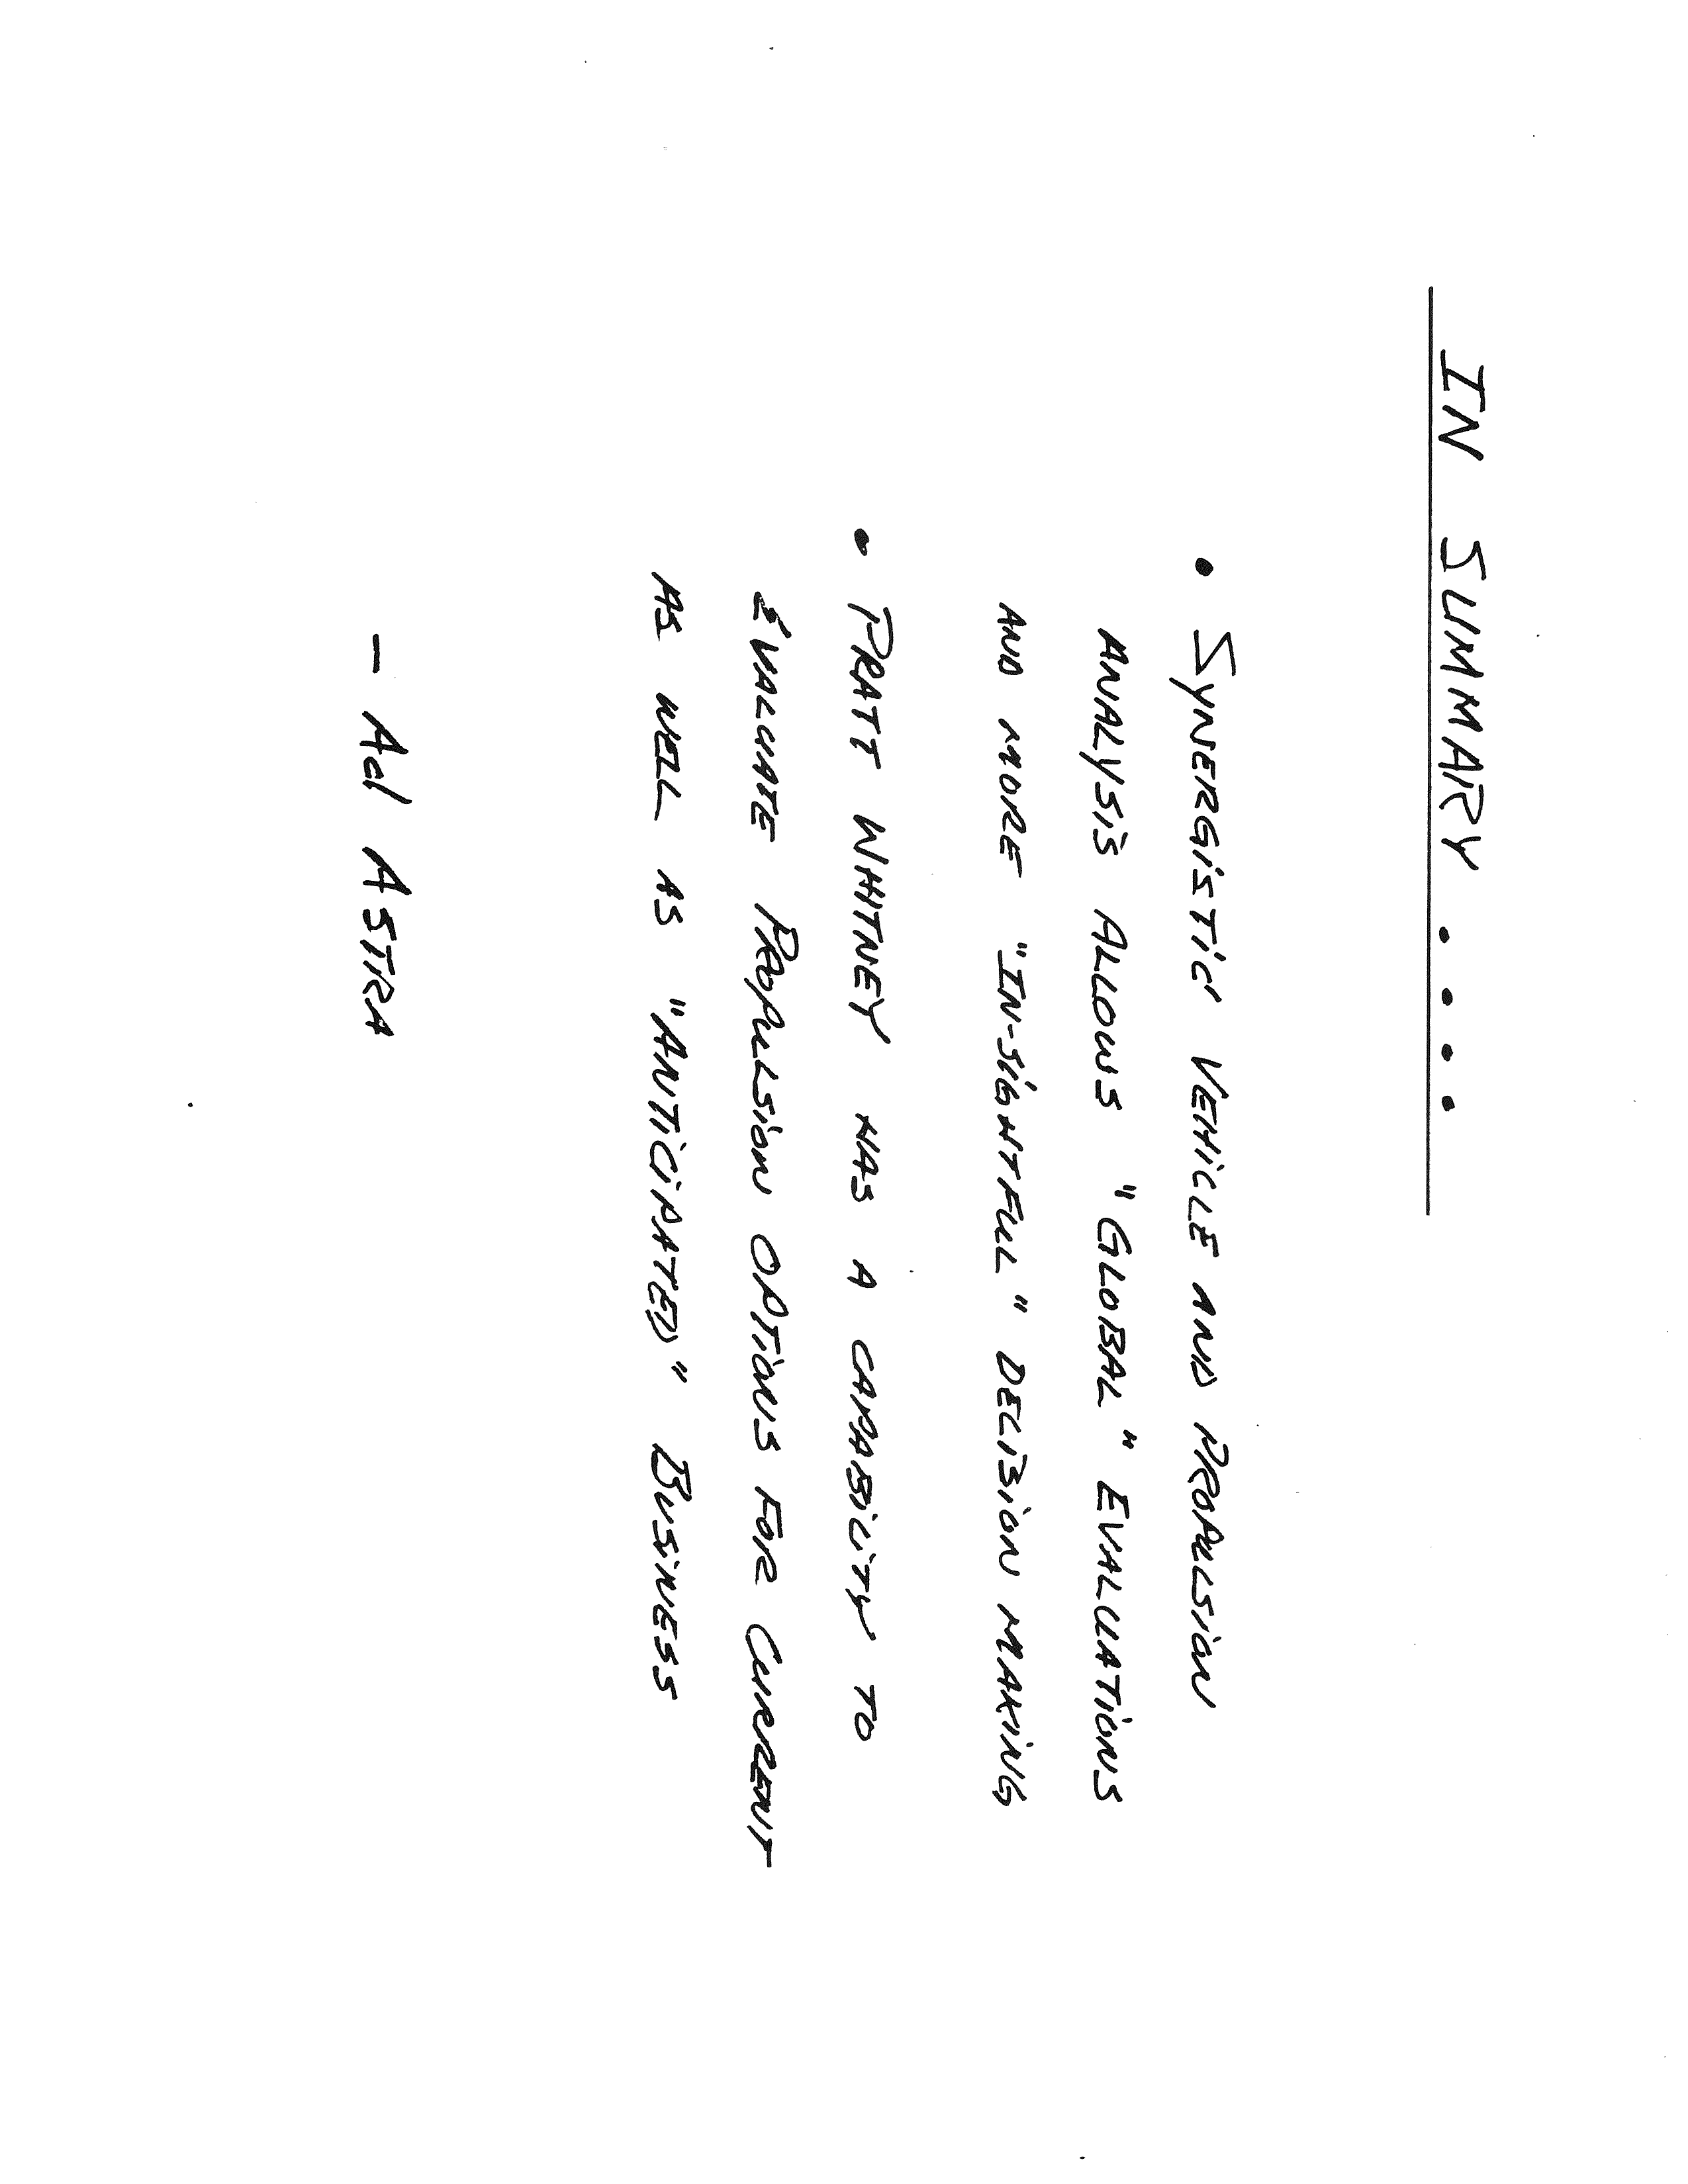 IN SUMMARY . . . .
• SYNERGISTIC VEHICLE AND PROPULSION
ANALYSIS ALLOWS "GLOBAL" EVALUATIONS
AND MORE "IN-SIGHTFULL" DECISION MAKING
• PRATT WHITNEY HAS A CAPABILITY TO
EVALUATE PROPULSION OPTIONS FOR CURRENT
AS WELL AS "ANTICIPATED" BUSINESS
— Ad ASTRA